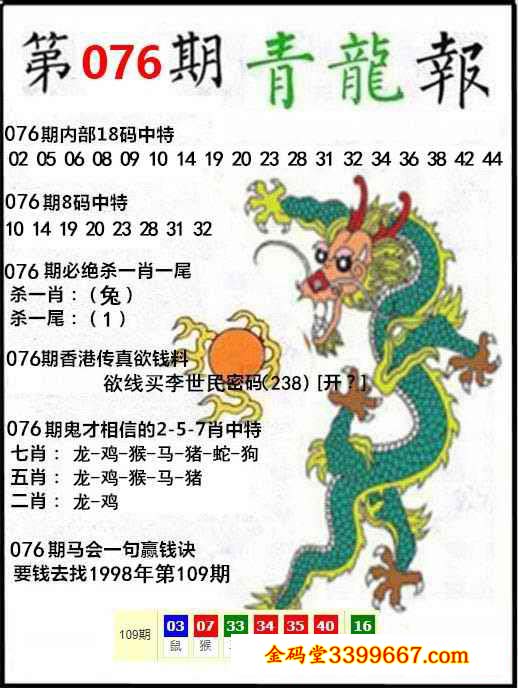 第076期 青龍報
076期内部18码中特
02 05 06 08 09 10 14 19 20 23 28 31 32 34 36 38 42 44
076期8码中特
10 14 19 20 23 28 31 32
076期必绝杀一肖一尾
杀一肖：（兔）
杀一尾：（1）
076期香港传真欲钱料
欲线买李世民密码(238) [开？]
076期鬼才相信的2-5-7肖中特
七肖： 龙-鸡-猴-马-猪-蛇-狗
五肖： 龙-鸡-猴-马-猪
二肖： 龙-鸡
076期马会一句赢钱诀
要钱去找1998年第109期
109期 03 07 33 34 35 40 16
鼠 猴
金码堂3399667.com